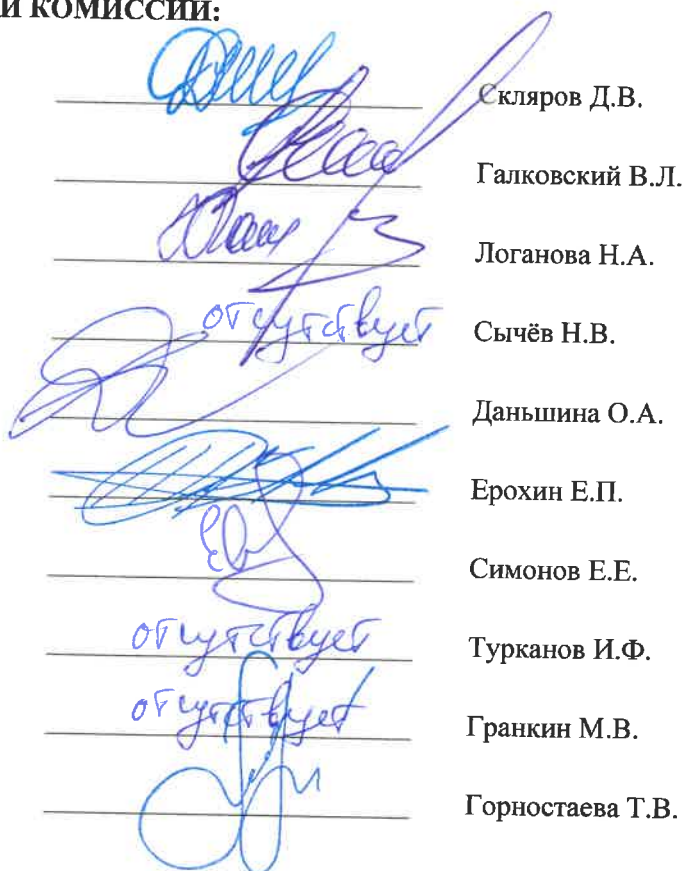 И КОМИССИИ:
Скляров Д.В.
Галковский В.Л.
Логанова Н.А.
отсутствует Сычёв Н.В.
Даньшина О.А.
Ерохин Е.П.
Симонов Е.Е.
отсутствует Турканов И.Ф.
отсутствует Гранкин М.В.
Горностаева Т.В.